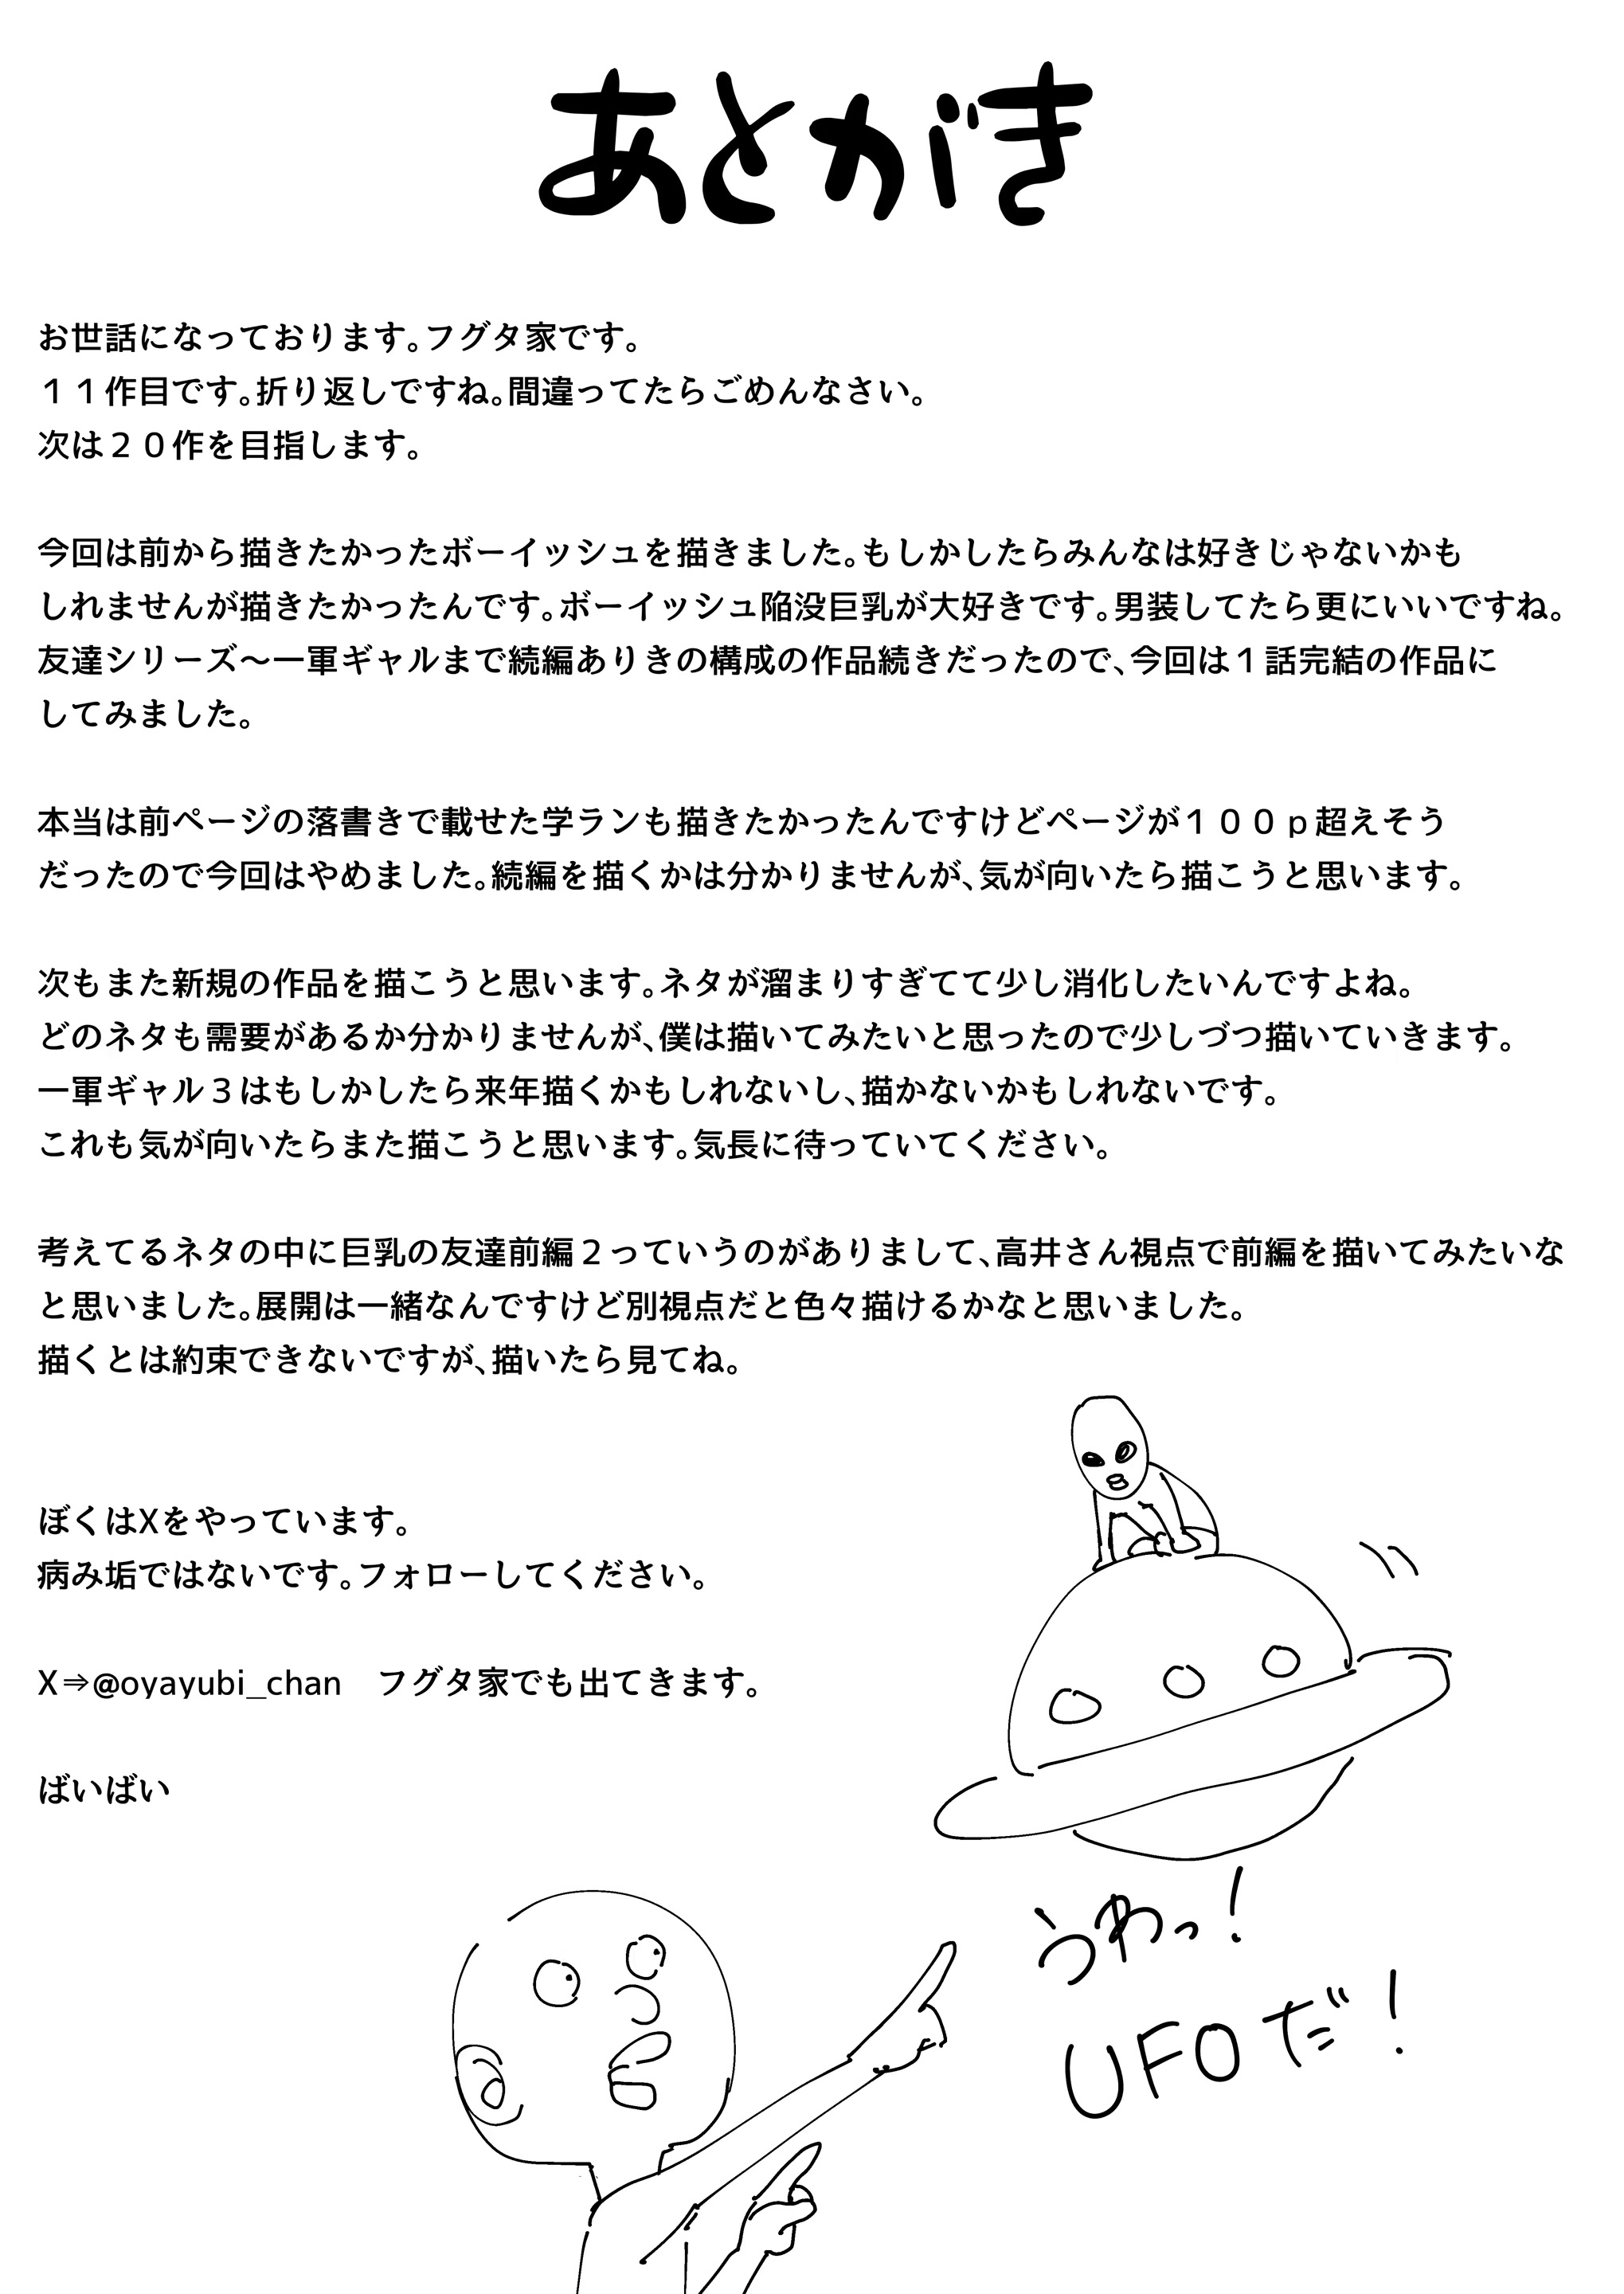 あとがき
お世話になっております。フグタ家です。
１１作目です。折り返しですね。間違ってたらごめんなさい。
次は２０作を目指します。
今回は前から描きたかったボーイッシュを描きました。もしかしたらみんなは好きじゃないかも
しれませんが描きたかったんです。ボーイッシュ陥没巨乳が大好きです。男装してたら更にいいですね。
友達シリーズ～一軍ギャルまで続編ありきの構成の作品続きだったので、今回は１話完結の作品に
してみました。
本当は前ページの落書きで載せた学ランも描きたかったんですけどページが１００ｐ超えそう
だったので今回はやめました。続編を描くかは分かりませんが、気が向いたら描こうと思います。
次もまた新規の作品を描こうと思います。ネタが溜まりすぎてて少し消化したいんですよね。
どのネタも需要があるか分かりませんが、僕は描いてみたいと思ったので少しづつ描いていきます。
一軍ギャル３はもしかしたら来年描くかもしれないし、描かないかもしれないです。
これも気が向いたらまた描こうと思います。気長に待っていてください。
考えてるネタの中に巨乳の友達前編２っていうのがありまして、高井さん視点で前編を描いてみたいな
と思いました。展開は一緒なんですけど別視点だと色々描けるかなと思いました。
描くとは約束できないですが、描いたら見てね。
ぼくはXをやっています。
病み垢ではないです。フォローしてください。
X⇒@oyayubi_chan　フグタ家でも出てきます。
ばいばい
うわっ！
UFOだ！